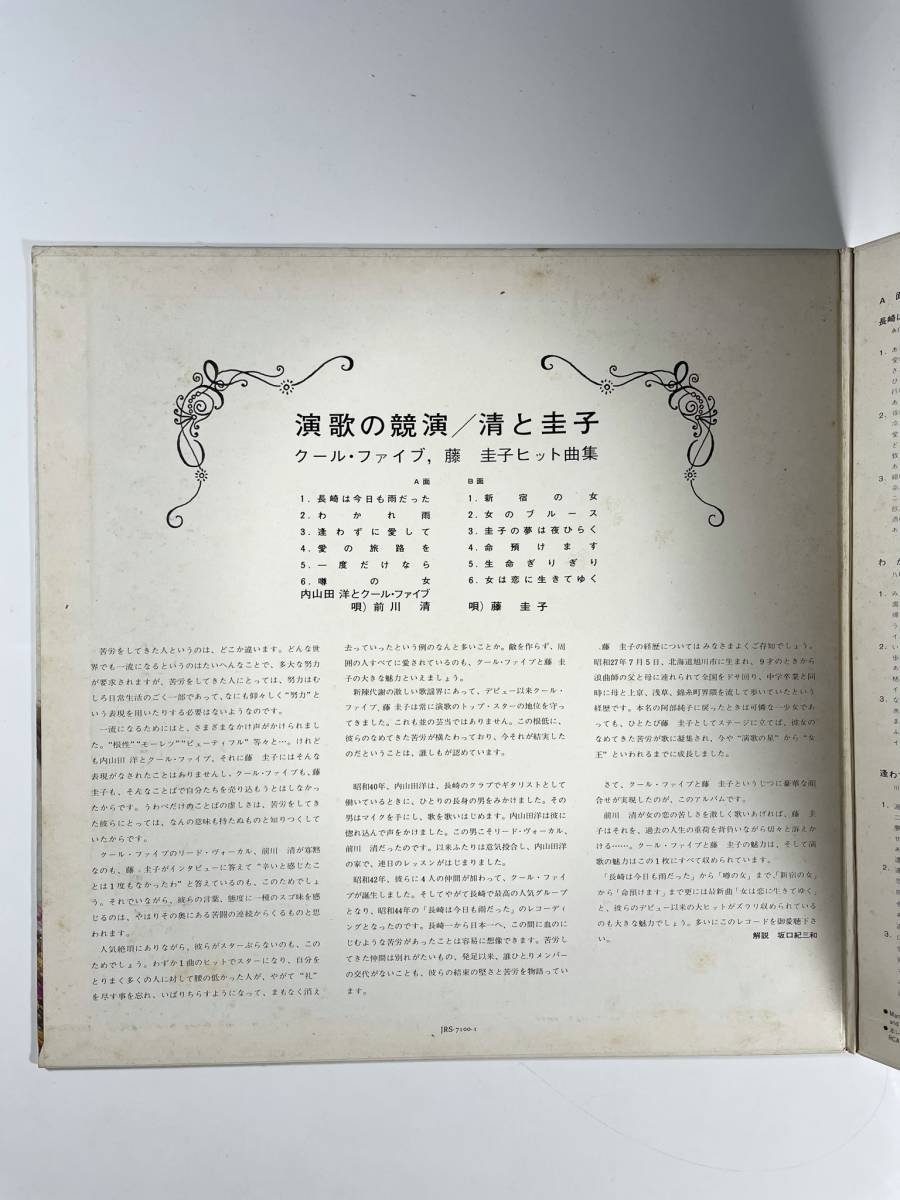 演歌の競演／清と圭子
クール・ファイブ，藤　圭子ヒット曲集
A面
1．長崎は今日も雨だった
2．わかれ雨
3．逢わずに愛して
4．愛の旅路を
5．一度だけなら
6．噂の女
内山田 洋とクール・ファイブ
唄）前川　清
B面
1．新宿の女
2．女のブルース
3．圭子の夢は夜ひらく
4．命預けます
5．生命ぎりぎり
6．女は恋に生きてゆく
唄）藤　圭子
苦労をしてきた人というのは、どこか違います。どんな世
界でも一流になるというのはたいへんなことで、多大な努力
が要求されますが、苦労をしてきた人にとっては、努力はむ
しろ日常生活のごく一部であって、なにも仰々しく“努力”と
いう表現を用いたりする必要はないようなのです。
一流になるためにはと、さまざまなかけ声がかけられまし
た。“根性”“モーレツ”“ビューティフル”等々と…。けれど
も内山田 洋とクール・ファイブ、それに藤　圭子にはそんな
表現がなされたことはありませんし、クール・ファイブも、藤
圭子も、そんなことばで自分たちを売り込もうとはしなかっ
たからです。うわべだけのことばの虚しさは、苦労をしてき
た彼らにとっては、なんの意味も持たぬものと知りつくして
いたからです。
クール・ファイブのリード・ヴォーカル、前川　清が寡黙
なのも、藤　圭子がインタビューに答えて“辛いと感じたこ
とは1度もなかったわ”と答えているのも、このためでしょ
う。それでいながら、彼らの言葉、態度に一種のスゴ味を感
じるのは、やはりその奥にある苦闘の連続からくるものと思
われます。
人気絶頂にありながら、彼らがスターぶらないのも、この
ためでしょう。わずか1曲のヒットでスターになり、自分を
とりまく多くの人に対して腰の低かった人が、やがて“礼”
を尽す事を忘れ、いばりちらすようになって、まもなく消え
去っていったという例のなんと多いことか。敵を作らず、周
囲の人すべてに愛されているのも、クール・ファイブと藤　圭
子の大きな魅力といえましょう。
新陳代謝の激しい歌謡界にあって、デビュー以来クール・
ファイブ、藤　圭子は常に演歌のトップ・スターの地位を守っ
てきました。これも並の芸当ではありません。この根底に、
彼らのなめてきた苦労が横たわっており、今それが結実した
のだということは、誰しもが認めています。
昭和40年、内山田洋は、長崎のクラブでギタリストとして
働いているときに、ひとりの長身の男をみかけました。その
男はマイクを手にし、歌を歌いはじめます。内山田洋は彼に
惚れ込んで声をかけました。この男こそリード・ヴォーカル、
前川　清だったのです。以来ふたりは意気投合し、内山田洋
の家で、連日のレッスンがはじまりました。
昭和42年、彼らに4人の仲間が加わって、クール・ファイ
ブが誕生しました。そしてやがて長崎で最高の人気グループ
となり、昭和44年の「長崎は今日も雨だった」のレコーディ
ングとなったのです。長崎一から日本一へ、この間に血のに
じむような苦労があったことは容易に想像できます。苦労し
てきた仲間は別れがたいもの、発足以来、誰ひとりメンバー
の交代がないことも、彼らの結束の堅さと苦労を物語ってい
ます。
藤　圭子の経歴についてはみなさまよくご存知でしょう。
昭和27年7月5日、北海道旭川市に生まれ、9才のときから
浪曲師の父と母に連れられて全国をドサ回り、中学卒業と同
時に母と上京、浅草、錦糸町界隈を流して歩いていたという
経歴です。本名の阿部純子に戻ったときは可憐な一少女であ
っても、ひとたび藤　圭子としてステージに立てば、彼女の
なめてきた苦労が歌に凝集され、今や“演歌の星”から“女
王”といわれるまでに成長しました。
さて、クール・ファイブと藤　圭子というじつに豪華な顔
合せが実現したのが、このアルバムです。
前川　清が女の恋の苦しさを激しく歌いあげれば、藤　圭
子はそれを、過去の人生の重荷を背負いながら切々と訴えか
ける……。クール・ファイブと藤　圭子の魅力は、そして演
歌の魅力はこの1枚にすべて収められています。
「長崎は今日も雨だった」から「噂の女」まで、「新宿の女」
から「命預けます」まで更には最新曲「女は恋に生きてゆく」
と、彼らのデビュー以来の大ヒットがズラリ収められている
のも大きな魅力でしょう。多いにこのレコードを御愛聴下さ
い。
解説　坂口紀三和
JRS-7100-1
A 面